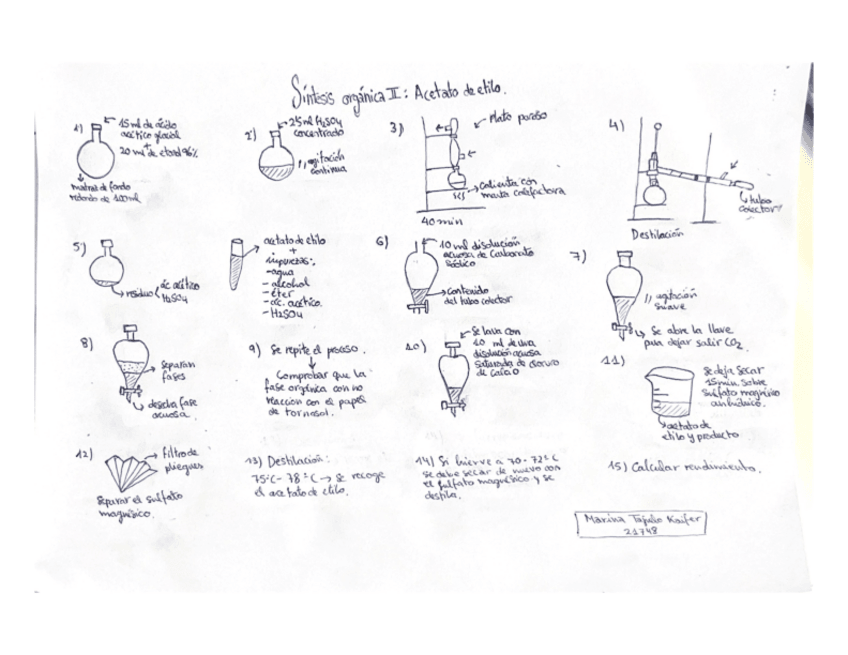 Síntesis orgánica II: Acetato de etilo.
1)
15 ml de ácido
acético glacial
+
20 ml de etanol 96%
matraz de fondo
redondo de 100 ml
2)
2'5 ml H₂SO₄
concentrado
agitación
continua
3)
Plato poroso
Calienta con
manta calefactora
40 min
4)
tubo
colector
Destilación
5)
residuo
ác. acético
H₂SO₄
acetato de etilo
+
impurezas:
-agua
-alcohol
-éter
-ac. acético.
-H₂SO₄
6)
10 ml disolución
acuosa de Carbonato
Sódico
contenido
del tubo colector
7)
agitación
suave
Se abre la llave
para dejar salir CO₂
8)
separan
fases
desecha fase
acuosa.
9) Se repite el proceso.
Comprobar que la
fase orgánica con no
reacción con el papel
de tornasol.
10)
Se lava con
10 ml de una
disolución acuosa
saturada de cloruro
de calcio
11)
se deja secar
15 min. sobre
sulfato magnésico
anhidrico.
acetato de
etilo y producto
12)
filtro de
pliegues
Separar el sulfato
magnésico.
13) Destilación:
75ºC - 78ºC → se recoge
el acetato de etilo.
14) Si hierve a 70 - 72ºC
se debe secar de nuevo con
el sulfato magnésico y se
destila.
15) Calcular rendimiento.
Marina
21748